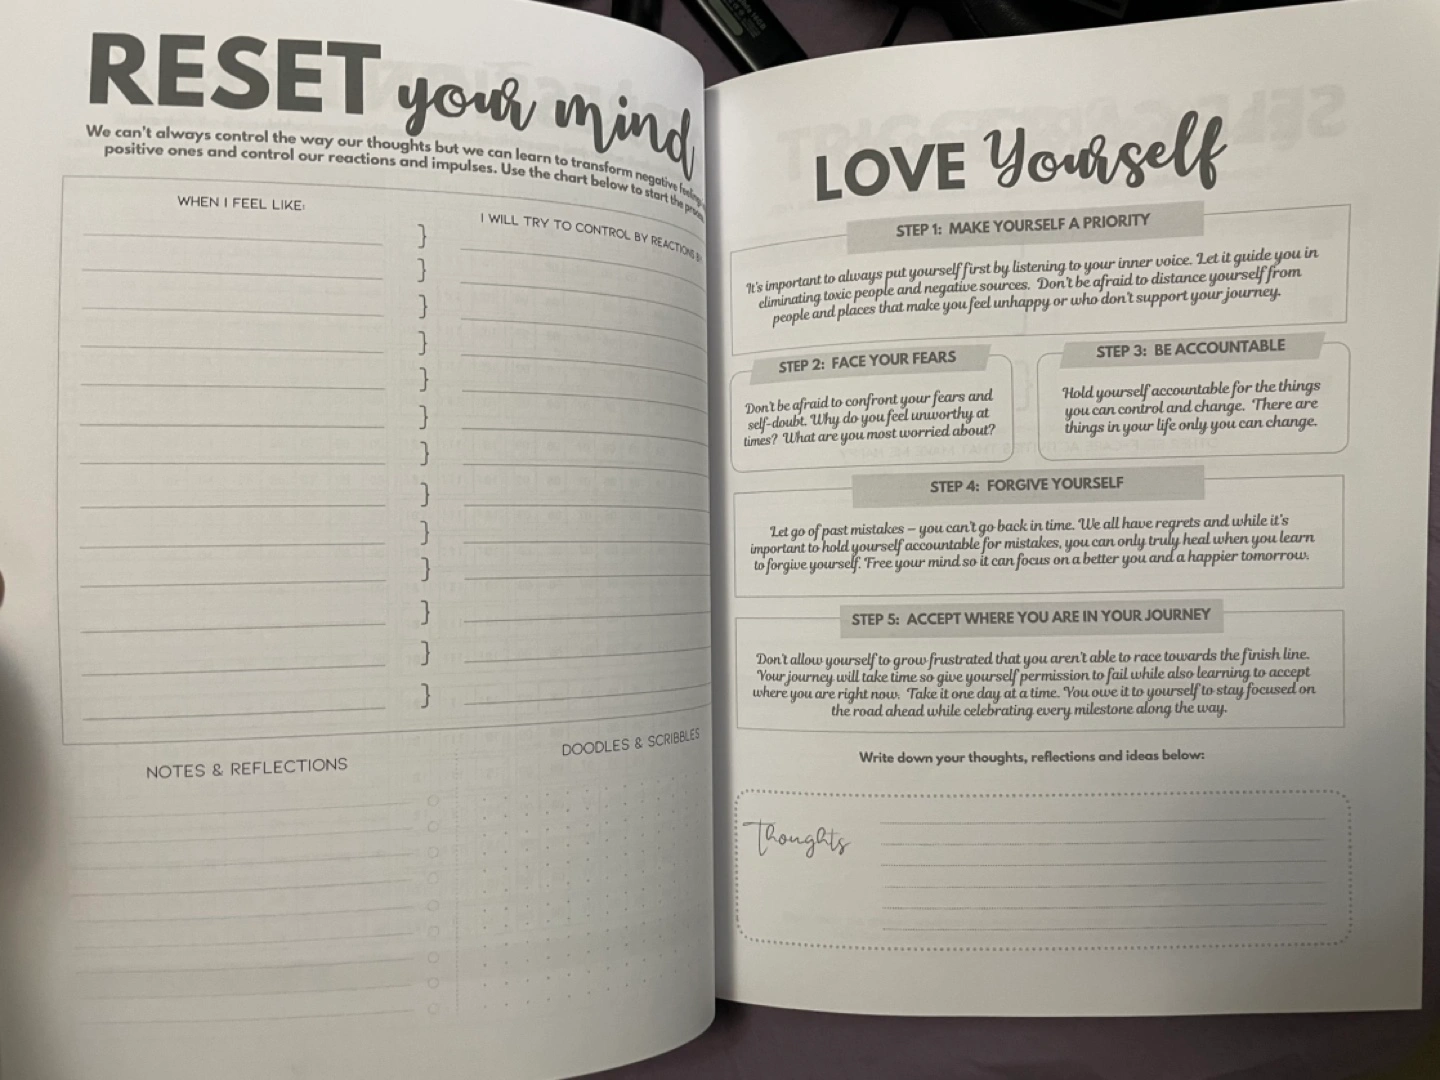 RESET your mind
We can't always control the way our thoughts but we can learn to transform negative feelings
positive ones and control our reactions and impulses. Use the chart below to start the process
WHEN I FEEL LIKE:
I WILL TRY TO CONTROL BY REACTIONS BY
}
}
}
}
}
}
}
}
}
}
}
}
}
NOTES & REFLECTIONS
DOODLES & SCRIBBLES
LOVE Yourself
STEP 1: MAKE YOURSELF A PRIORITY
It's important to always put yourself first by listening to your inner voice. Let it guide you in
eliminating toxic people and negative sources. Don't be afraid to distance yourself from
people and places that make you feel unhappy or who don't support your journey.
STEP 2: FACE YOUR FEARS
Don't be afraid to confront your fears and
self-doubt. Why do you feel unworthy at
times? What are you most worried about?
STEP 3: BE ACCOUNTABLE
Hold yourself accountable for the things
you can control and change. There are
things in your life only you can change.
STEP 4: FORGIVE YOURSELF
Let go of past mistakes – you can't go back in time. We all have regrets and while it's
important to hold yourself accountable for mistakes, you can only truly heal when you learn
to forgive yourself. Free your mind so it can focus on a better you and a happier tomorrow.
STEP 5: ACCEPT WHERE YOU ARE IN YOUR JOURNEY
Don't allow yourself to grow frustrated that you aren't able to race towards the finish line.
Your journey will take time so give yourself permission to fail while also learning to accept
where you are right now. Take it one day at a time. You owe it to yourself to stay focused on
the road ahead while celebrating every milestone along the way.
Write down your thoughts, reflections and ideas below:
Thoughts